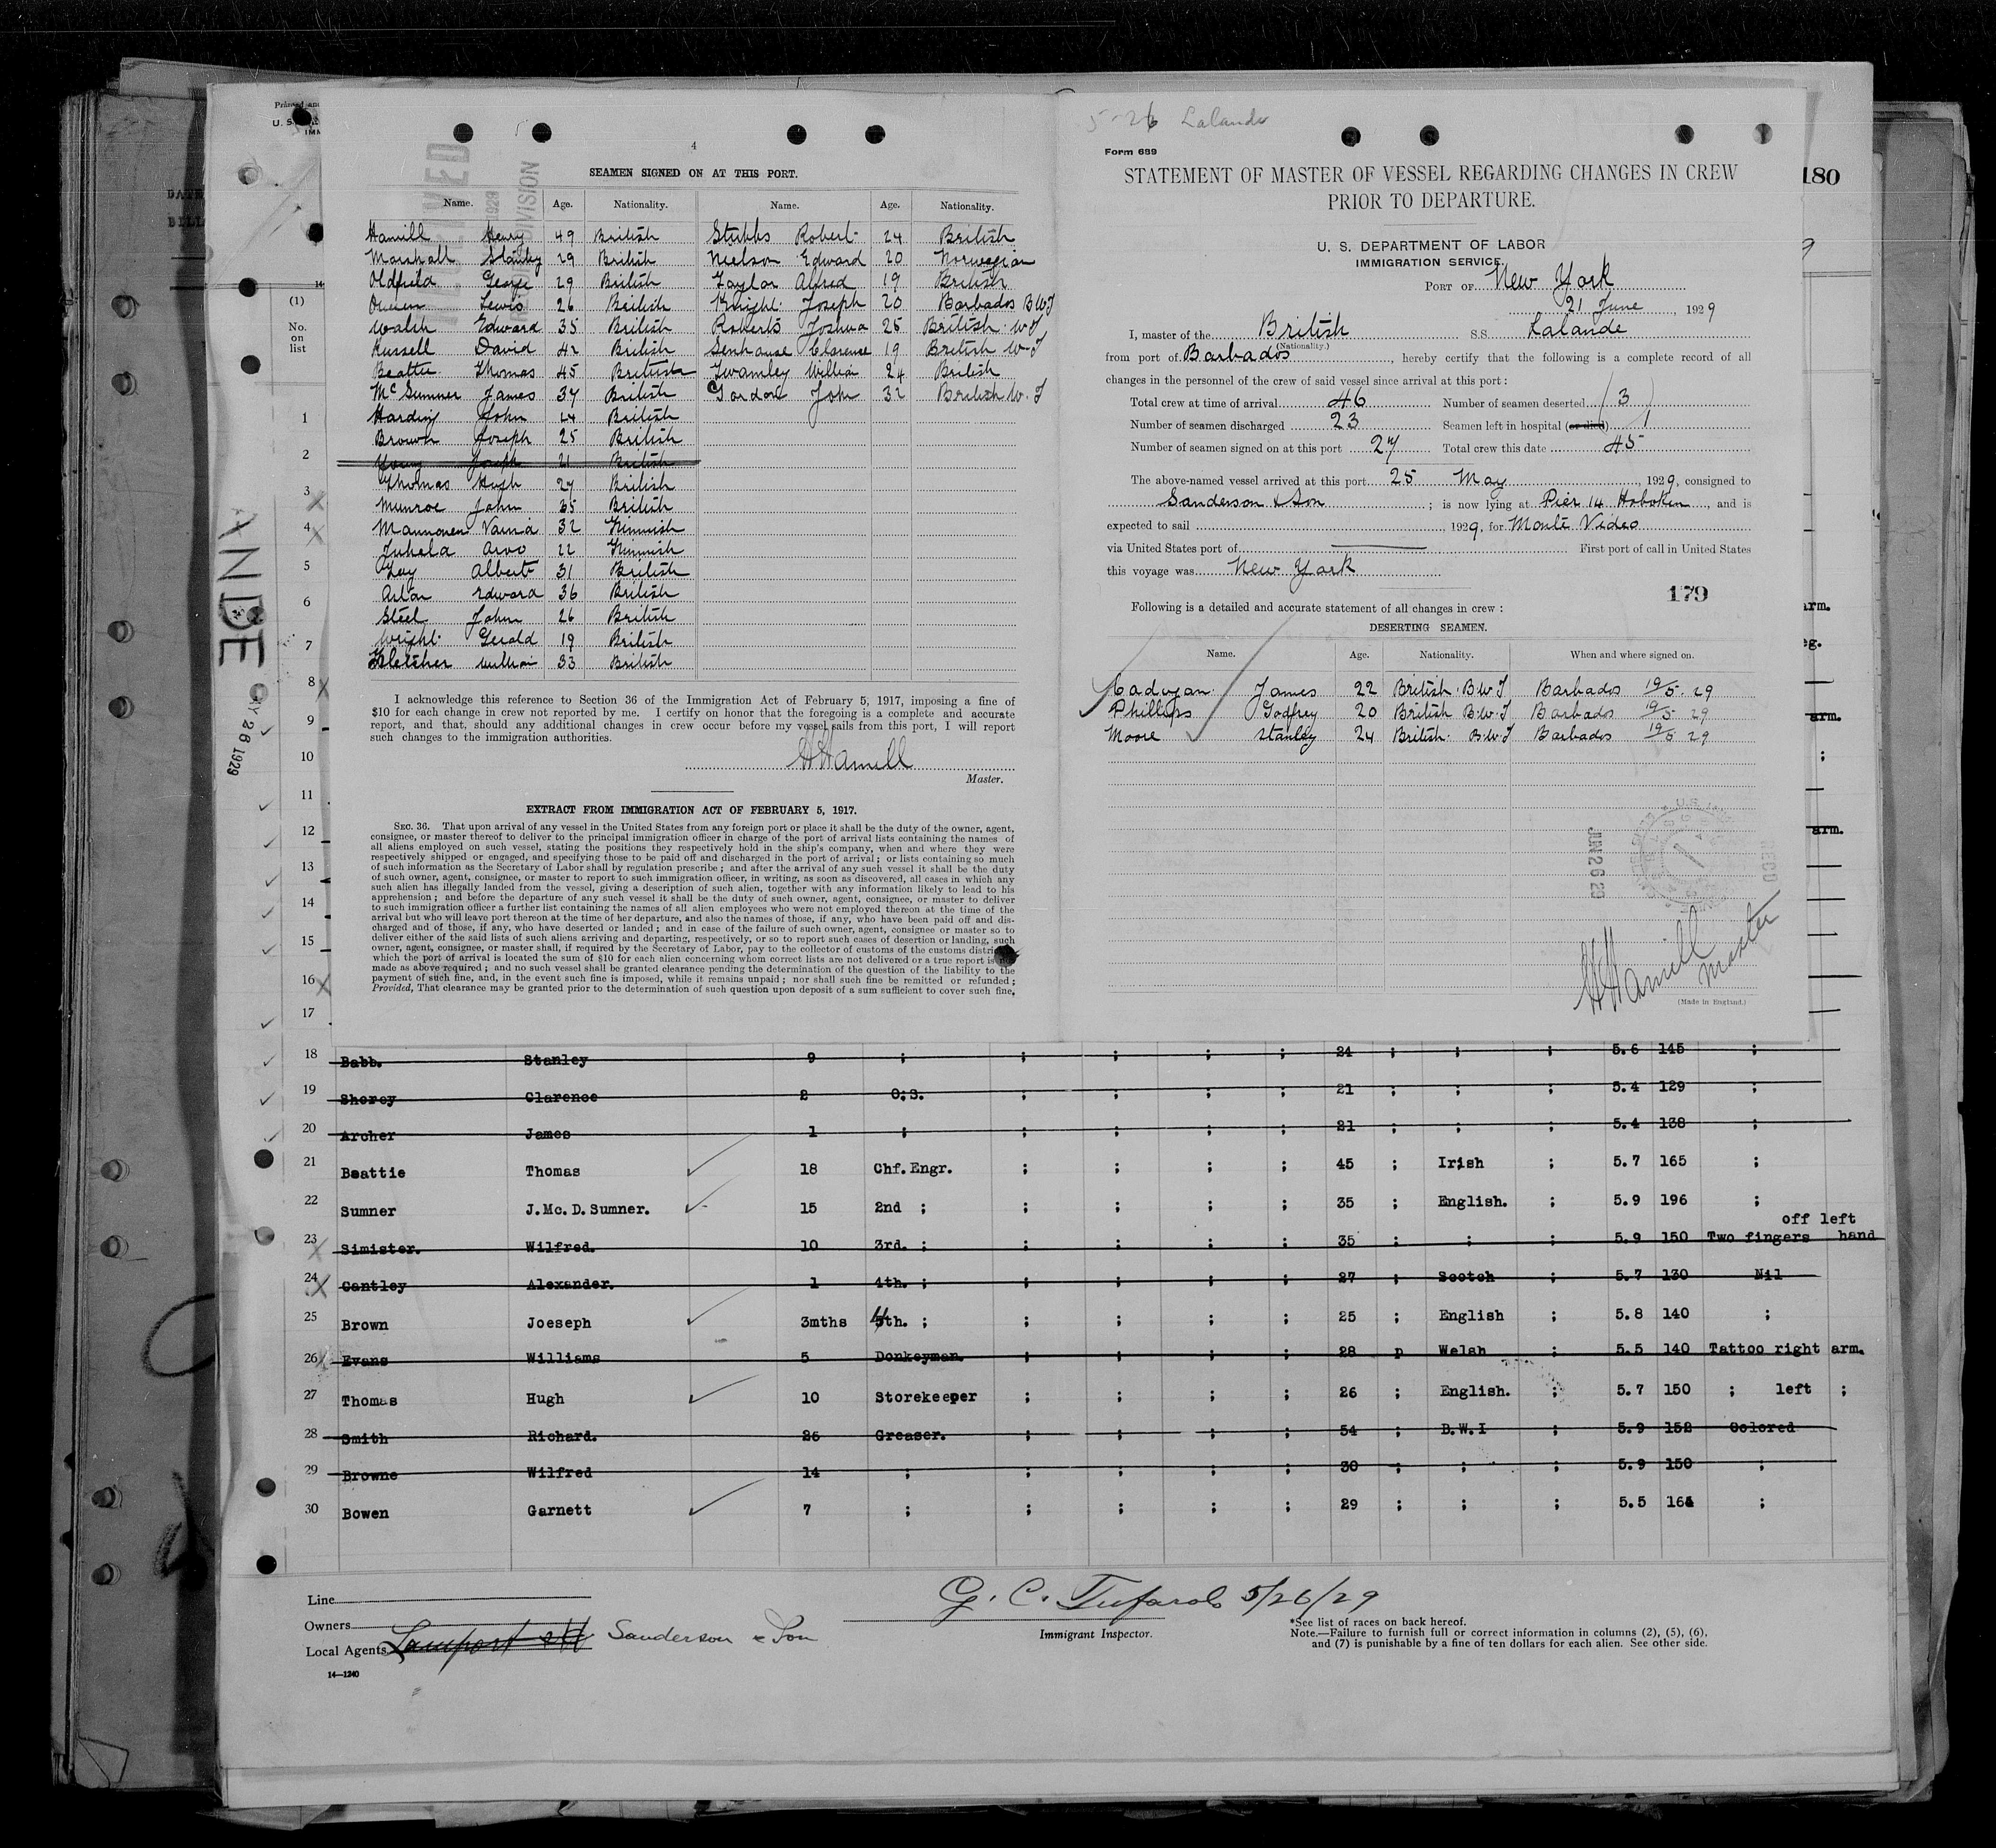 4
SEAMEN SIGNED ON AT THIS PORT.
Name. Age. Nationality. Name. Age. Nationality.
Hamill Henry 49 British Stubbs Robert 24 British
Marshall Stanley 29 British Nielson Edward 20 Norwegian
Oldfield George 29 British Taylor Alfred 19 British
Lewis 26 British Knight Joseph 20 Barbados B W I
Walsh Edward 35 British Roberts Joshua 25 British W I
Russell David 42 British Senhouse Clarence 19 British W I
Beattie Thomas 45 British Twamley William 24 British
Mc Sumner James 34 British Gordon John 32 British W. I
Harding John 24 British
Brown Joseph 25 British
Young Joseph 21 British
Thomas Hugh 27 British
Munroe John 65 British
32 Finnish
Juhela Arvo 22 Finnish
Albert 31 British
Edward 36 British
Steel John 26 British
Wright Gerald 19 British
Fletcher William 33 British
I acknowledge this reference to Section 36 of the Immigration Act of February 5, 1917, imposing a fine of
$10 for each change in crew not reported by me. I certify on honor that the foregoing is a complete and accurate
report, and that, should any additional changes in crew occur before my vessel sails from this port, I will report
such changes to the immigration authorities.
H Hamill
Master.
EXTRACT FROM IMMIGRATION ACT OF FEBRUARY 5, 1917.
SEC. 36. That upon arrival of any vessel in the United States from any foreign port or place it shall be the duty of the owner, agent,
consignee, or master thereof to deliver to the principal immigration officer in charge of the port of arrival lists containing the names of
all aliens employed on such vessel, stating the positions they respectively hold in the ship's company, when and where they were
respectively shipped or engaged, and specifying those to be paid off and discharged in the port of arrival; or lists containing so much
of such information as the Secretary of Labor shall by regulation prescribe; and after the arrival of any such vessel it shall be the duty
of such owner, agent, consignee, or master to report to such immigration officer, in writing, as soon as discovered, all cases in which any
such alien has illegally landed from the vessel, giving a description of such alien, together with any information likely to lead to his
apprehension; and before the departure of any such vessel it shall be the duty of such owner, agent, consignee, or master to deliver
to such immigration officer a further list containing the names of all alien employees who were not employed thereon at the time of the
arrival but who will leave port thereon at the time of her departure, and also the names of those, if any, who have been paid off and dis-
charged and of those, if any, who have deserted or landed; and in case of the failure of such owner, agent, consignee or master so to
deliver either of the said lists of such aliens arriving and departing, respectively, or so to report such cases of desertion or landing, such
owner, agent, consignee, or master shall, if required by the Secretary of Labor, pay to the collector of customs of the customs district
which the port of arrival is located the sum of $10 for each alien concerning whom correct lists are not delivered or a true report is not
made as above required; and no such vessel shall be granted clearance pending the determination of the question of the liability to the
payment of such fine, and, in the event such fine is imposed, while it remains unpaid; nor shall such fine be remitted or refunded;
Provided, That clearance may be granted prior to the determination of such question upon deposit of a sum sufficient to cover such fine,
5-26 Lalande
Form 689
STATEMENT OF MASTER OF VESSEL REGARDING CHANGES IN CREW
PRIOR TO DEPARTURE.
U. S. DEPARTMENT OF LABOR
IMMIGRATION SERVICE
PORT OF New York
21 June, 1929
I, master of the British S.S. Lalande
(Nationality.)
from port of Barbados, hereby certify that the following is a complete record of all
changes in the personnel of the crew of said vessel since arrival at this port:
Total crew at time of arrival 46 Number of seamen deserted (3)
Number of seamen discharged 23 Seamen left in hospital (or died) 1
Number of seamen signed on at this port 27 Total crew this date 45
The above-named vessel arrived at this port 25 May, 1929, consigned to
Sanderson & Son; is now lying at Pier 14 Hoboken, and is
expected to sail , 1929, for Monte Video
via United States port of First port of call in United States
this voyage was New York
179
Following is a detailed and accurate statement of all changes in crew:
DESERTING SEAMEN.
Name. Age. Nationality. When and where signed on.
Cadogan James 22 British B W I Barbados 19/5 29
Phillips Godfrey 20 British B.W.I Barbados 19/5 29
Moore Stanley 24 British B.W.I Barbados 19/5 29
JUN 26 29
H Hamill
Master
(Made in England.)
180
ANDE
MAY 26 1929
(1)
No.
on
list
1
2
3
4
5
6
7
8
9
10
11
12
13
14
15
16
17
arm.
eg.
arm.
;
arm.
18 Babb. Stanley 9 ; ; ; ; ; 24 ; ; ; 5.6 145 ;
19 Shorey Clarence 2 O.S. ; ; ; ; 21 ; ; ; 5.4 129 ;
20 Archer James 1 ; ; ; ; ; 21 ; ; ; 5.4 138 ;
21 Beattie Thomas 18 Chf.Engr. ; ; ; ; 45 ; Irish ; 5.7 165 ;
22 Sumner J.Mc.D.Sumner. 15 2nd ; ; ; ; ; 35 ; English. ; 5.9 196 ;
off left
23 Simister. Wilfred. 10 3rd. ; ; ; ; ; 35 ; ; ; 5.9 150 Two fingers hand
24 Cantley Alexander. 1 4th. ; ; ; ; ; 27 ; Scotch ; 5.7 130 Nil
25 Brown Joeseph 3mths 4th. ; ; ; ; ; 25 ; English ; 5.8 140 ;
26 Evans Williams 5 Donkeyman. ; ; ; ; 28 p Welsh ; 5.5 140 Tattoo right arm.
27 Thomas Hugh 10 Storekeeper ; ; ; ; 26 ; English. ; 5.7 150 ; left ;
28 Smith Richard. 25 Greaser. ; ; ; ; 54 ; B.W.I ; 5.9 152 Colored
29 Browne Wilfred 14 ; ; ; ; ; 30 ; ; ; 5.9 150 ;
30 Bowen Garnett 7 ; ; ; ; ; 29 ; ; ; 5.5 164 ;
Line
Owners
Local Agents Lamport & H Sanderson & Son
14—1240
G. C. 5/26/29
Immigrant Inspector.
*See list of races on back hereof.
Note.—Failure to furnish full or correct information in columns (2), (5), (6),
and (7) is punishable by a fine of ten dollars for each alien. See other side.